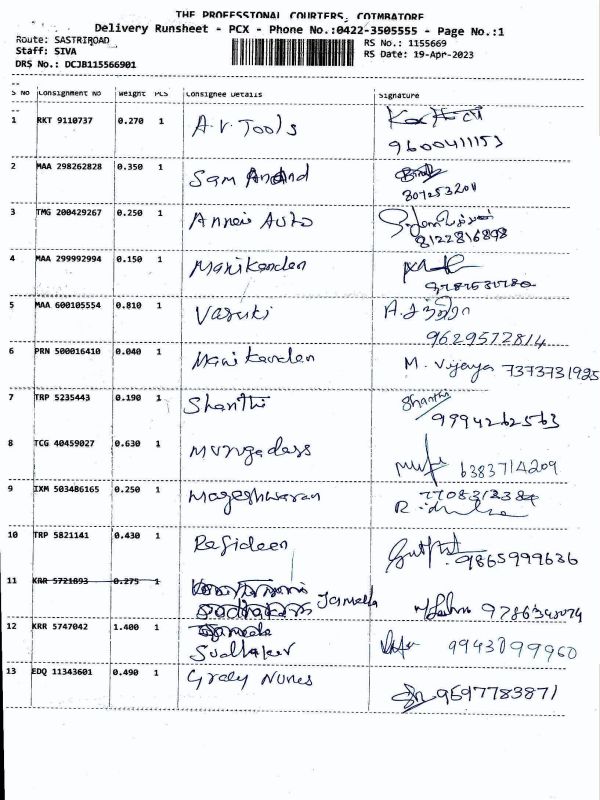 THE PROFESSIONAL COURIERS, COIMBATORE
Delivery Runsheet - PCX - Phone No.:0422-3505555 - Page No.:1
Route: SASTRIROAD
Staff: SIVA
DRS No.: DCJB115566901
RS No.: 1155669
RS Date: 19-Apr-2023
S No Consignment No Weight PCS Consignee Details Signature
1 RKT 9110737 0.270 1 A.V. Tools
9600411153
2 MAA 298262828 0.350 1 Sam Anand
3 TMG 200429267 0.250 1 Annai Auto
8122816898
4 MAA 299992994 0.150 1 Manikanden
5 MAA 600105554 0.810 1 Vasuki
9629572814
6 PRN 500016410 0.040 1 Manikanden M. Vijaya 7373731925
7 TRP 5235443 0.190 1 Shanthi Shanthi
9994262563
8 TCG 40459027 0.630 1 Murugadass
6383714209
9 IXM 503486165 0.250 1 Mageshwaran 7708312384
10 TRP 5821141 0.430 1 Rafideen
9865999636
11 KRR 5721893 0.275 1
Jamella
12 KRR 5747042 1.400 1
Sudhaker 9943099960
13 EDQ 11343601 0.490 1 Graly Nunes
9597783871